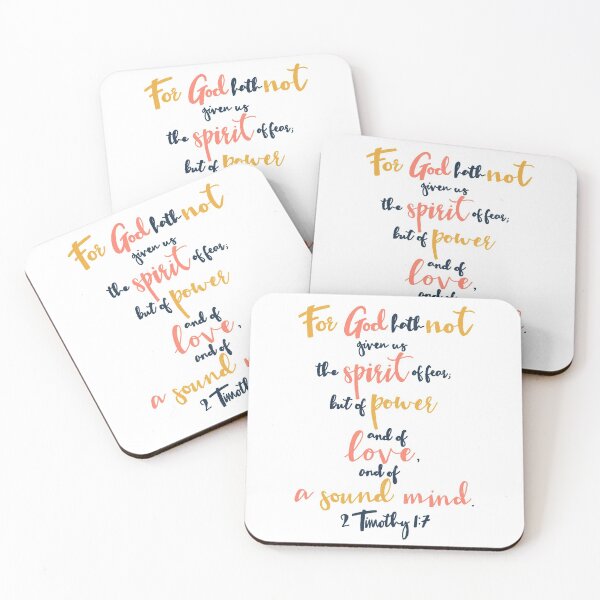 For God hath not
given us
the spirit of fear;
but of power
For God hath not
given us
the spirit of fear;
but of power
and of
love,
and of
For God hath not
given us
the spirit of fear;
but of power
and of
love,
and of
a sound
2 Timothy
For God hath not
given us
the spirit of fear;
but of power
and of
love,
and of
a sound mind.
2 Timothy 1:7